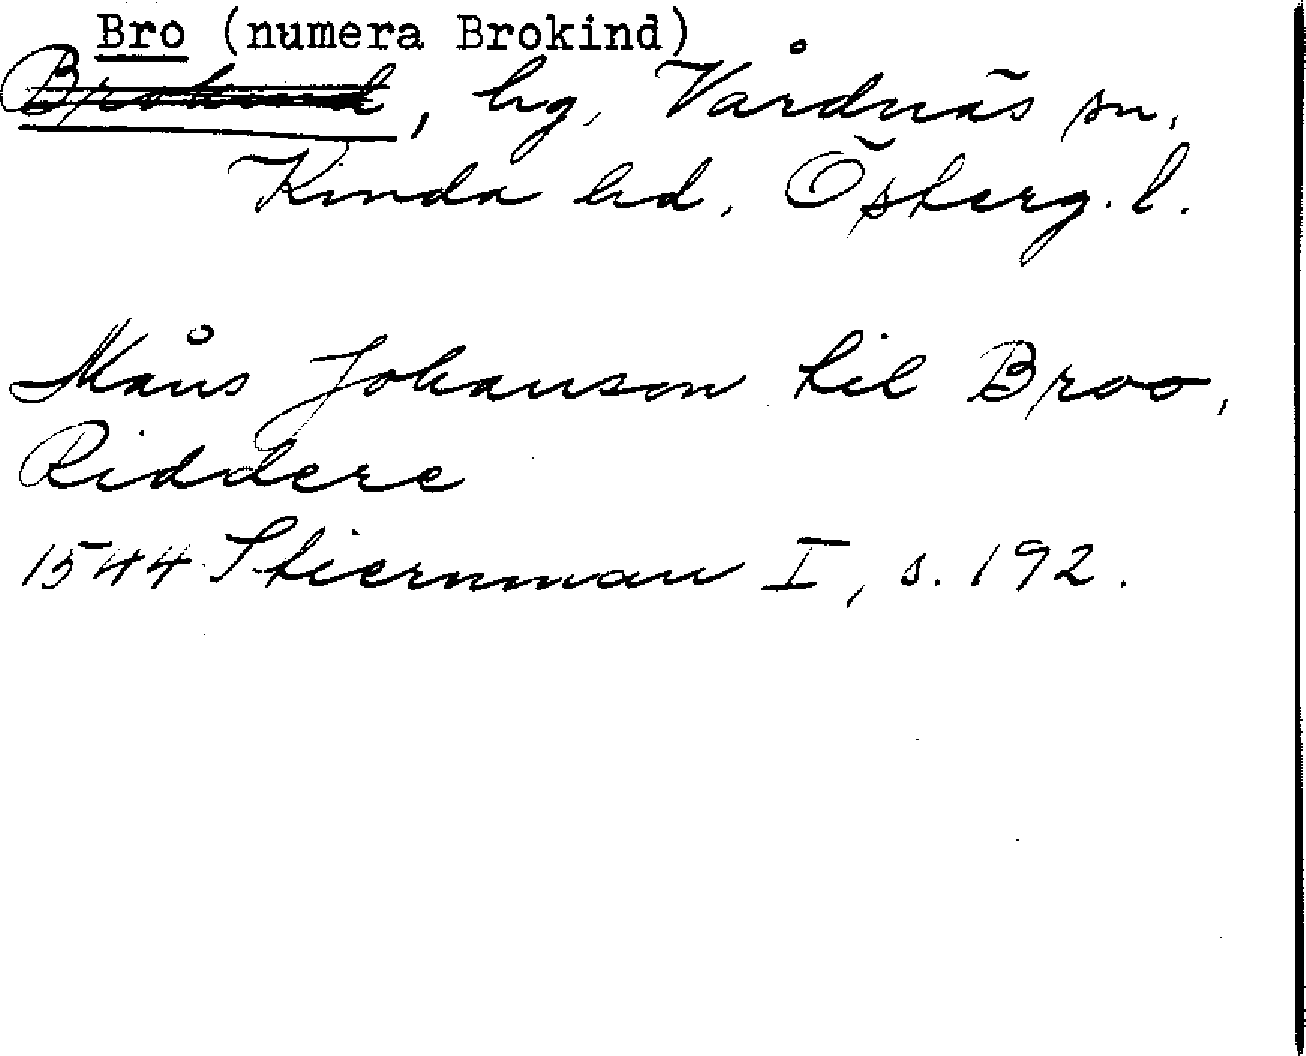 Bro (numera Brokind)
Brokind, hg, Vårdnäs sn,
Kinda hd, Österg. l.
Måns Johanson til Broo,
Riddere
1544 Stiernman I, s. 192.